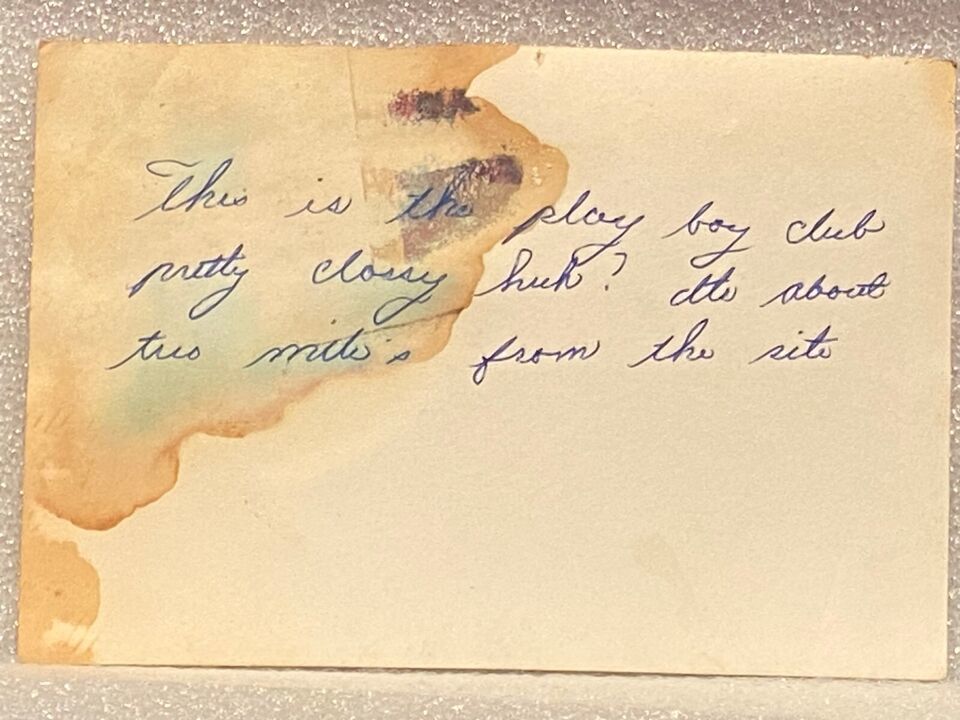 This is the play boy club
pretty classy huh? Its about
two mile's from the site